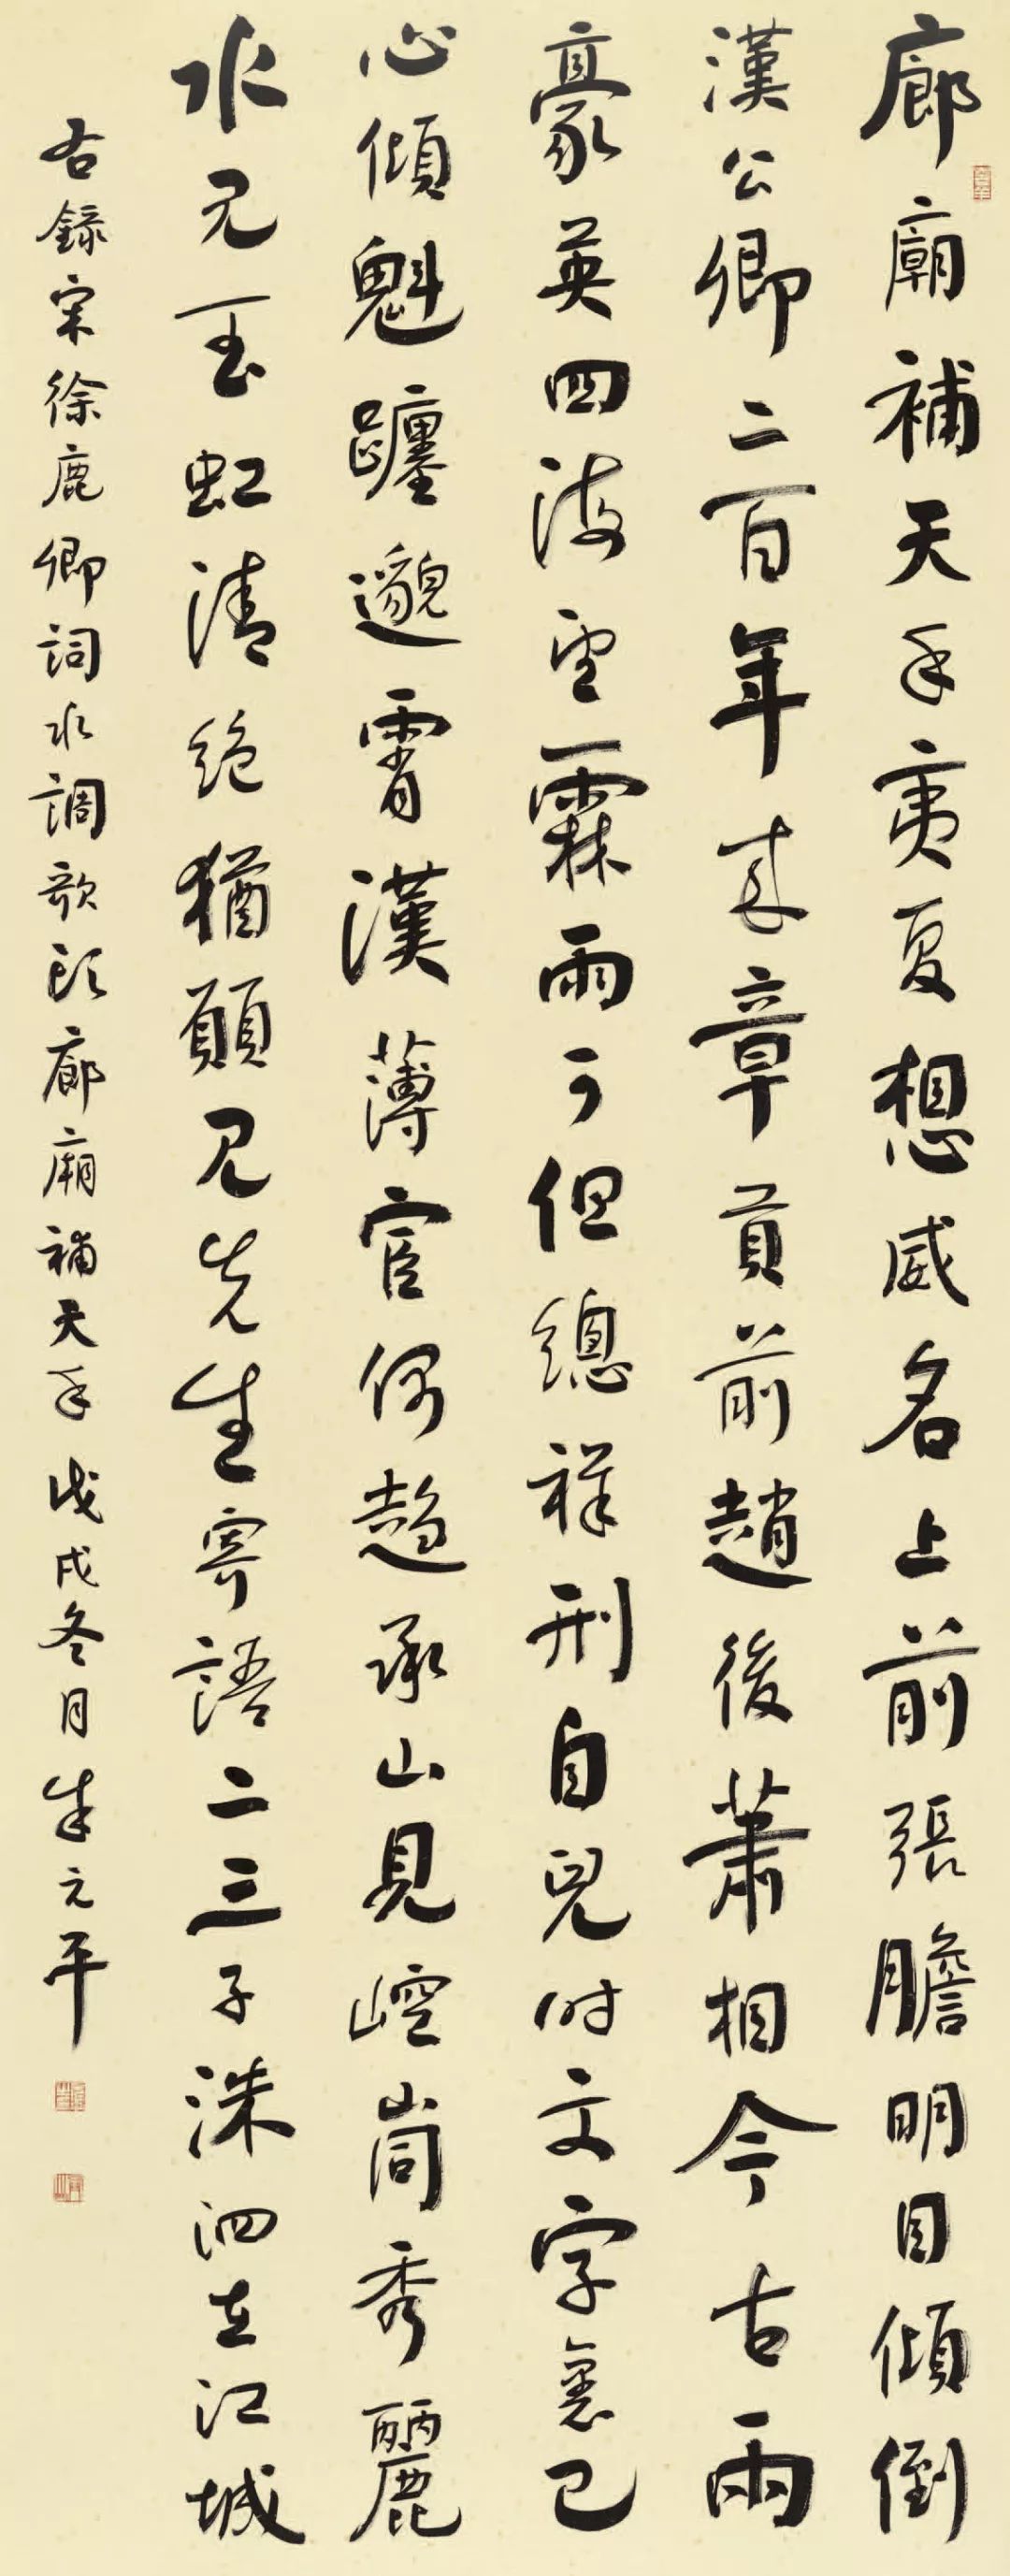 廊廟補天手夷夏想威名上前張膽明目傾倒
漢公卿二百年來章貢前趙後蕭相今古兩
豪英四海望霖雨可但總祥刑自兒時文字裏已
心傾魁躔邈霄漢薄宦偶趨承山見崆峒秀麗
水見玉虹清絕猶願見先生寄語二三子洙泗在江城
右錄宋徐鹿卿詞水調歌頭廊廟補天手戊戌冬月朱元平